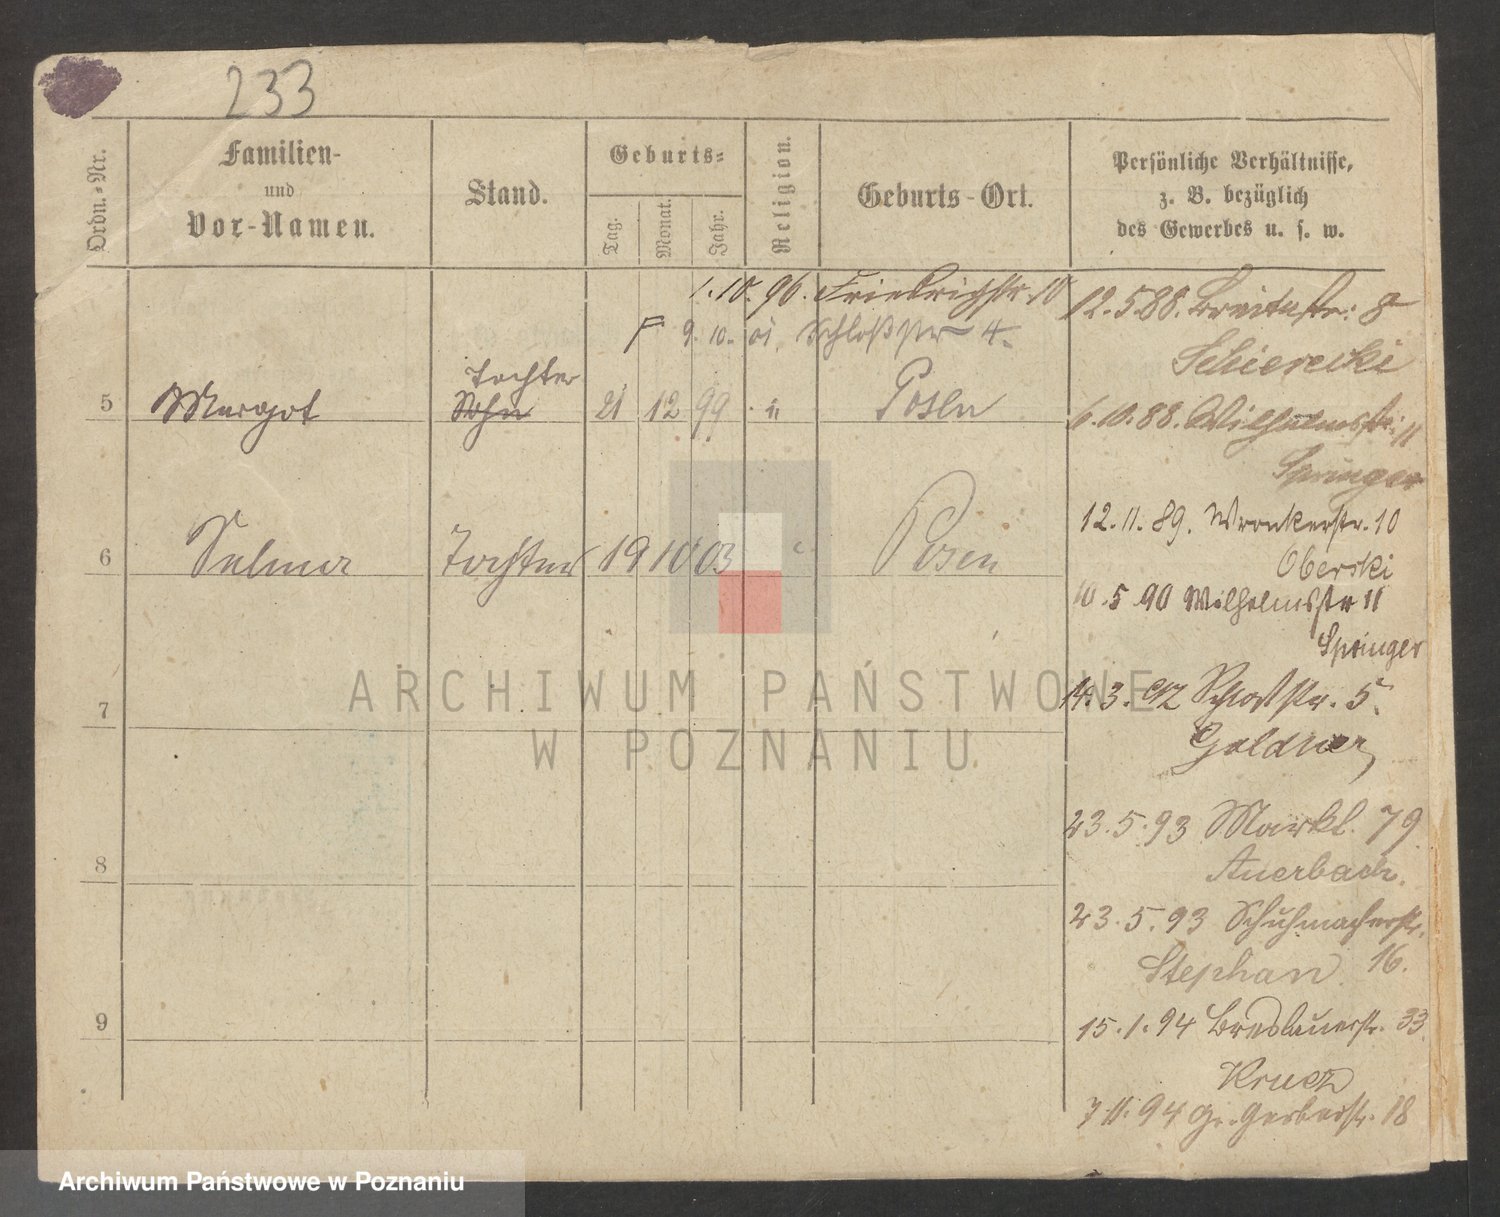 233
Ordn.-Nr.
Familien-
und
Vor-Namen.
Stand.
Geburts-
Tag.
Monat.
Jahr.
Religion.
Geburts-Ort.
Persönliche Verhältnisse,
z. B. bezüglich
des Gewerbes u. s. w.
1.10.96. Friedrichstr. 10
9.10.01. Schloßstr 4.
12.5.88. Breitestr: 8
Tochter
5 Margot Sohn 21 12 99 " Posen
6.10.88. Wilhelmstr. 11
Springer
12.11.89. Wronkerstr. 10
6 Selma Tochter 19 10 03 Posen
Oberski
10.5.90 Wilhelmsstr 11
Springer
14.3.92 Schloßstr. 5.
7
Goldner
23.5.93 Markt. 79
8
Auerbach.
23.5.93 Schuhmacherstr.
Stephan 16.
9
15.1.94 Breslauerstr. 33.
Gr. Gerberstr. 18
ARCHIWUM PAŃSTWOWE
W POZNANIU
Archiwum Państwowe w Poznaniu